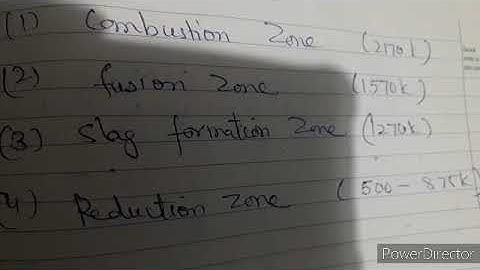 (1) Combustion Zone (2170k)
(2) fusion zone (1570k)
(3) Slag formation Zone (1270k)
4) Reduction zone (500-875k)
PowerDirector